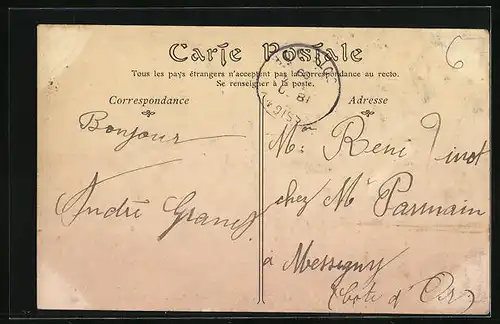 Carte Postale
Tous les pays étrangers n'acceptent pas la correspondance au recto.
Se renseigner à la poste.
6
Correspondance
Adresse
Bonjour
André
Mr René
chez Mr Parmain
à Messigny
(Côte d'Or)